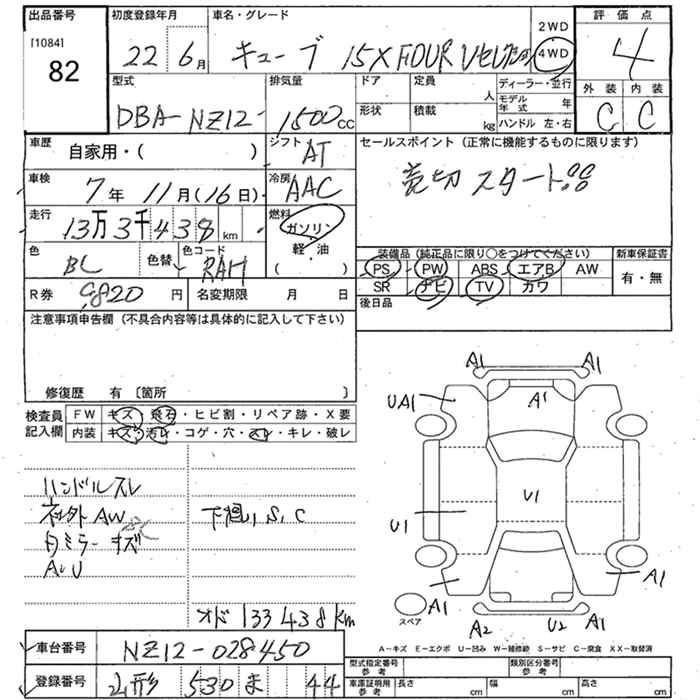 出品番号
[1084]
82
初度登録年月
22 6月
車名・グレード
キューブ 15X FOUR Vセレクション
2WD
4WD
評価点
4
外装 内装
C C
型式
DBA-NZ12-
排気量
1500cc
ドア
定員
人
ディーラー・並行
形状
積載
kg
モデル年式 年
ハンドル 左・右
車歴
自家用・( )
シフト
AT
セールスポイント (正常に機能するものに限ります)
売切スタート!!
車検
7年 11月(16日)
冷房
AAC
走行
13万3千438km
燃料
ガソリン
軽・油
( )
色
BL
色替
色コード
RAH
装備品 (純正品に限り○をつけてください)
新車保証書
PS PW ABS エアB AW
SR ナビ TV カワ
有・無
R券 9820円
名変期限 月 日
後日品
注意事項申告欄 (不具合内容等は具体的に記入して下さい)
修復歴 有 〔箇所 〕
検査員記入欄
FW キズ・飛石・ヒビ割・リペア跡・X要
内装 キズ・汚レ・コゲ・穴・スレ・キレ・破レ
ハンドルスレ
社外AW
タミラーキズ
A、U
下廻り S、C
オド 133438km
A1 A1
UA1 A1 A1
U1
U1
A1 A1
A2 U2 A1
スペア
A-キズ E-エクボ U-凹み W-補修跡 S-サビ C-腐食 XX-取替済
車台番号
NZ12-028450
登録番号
山形 530 ま 44
型式指定番号 参考
類別区分番号 参考
車庫証明用 参考
長さ cm
幅 cm
高さ cm